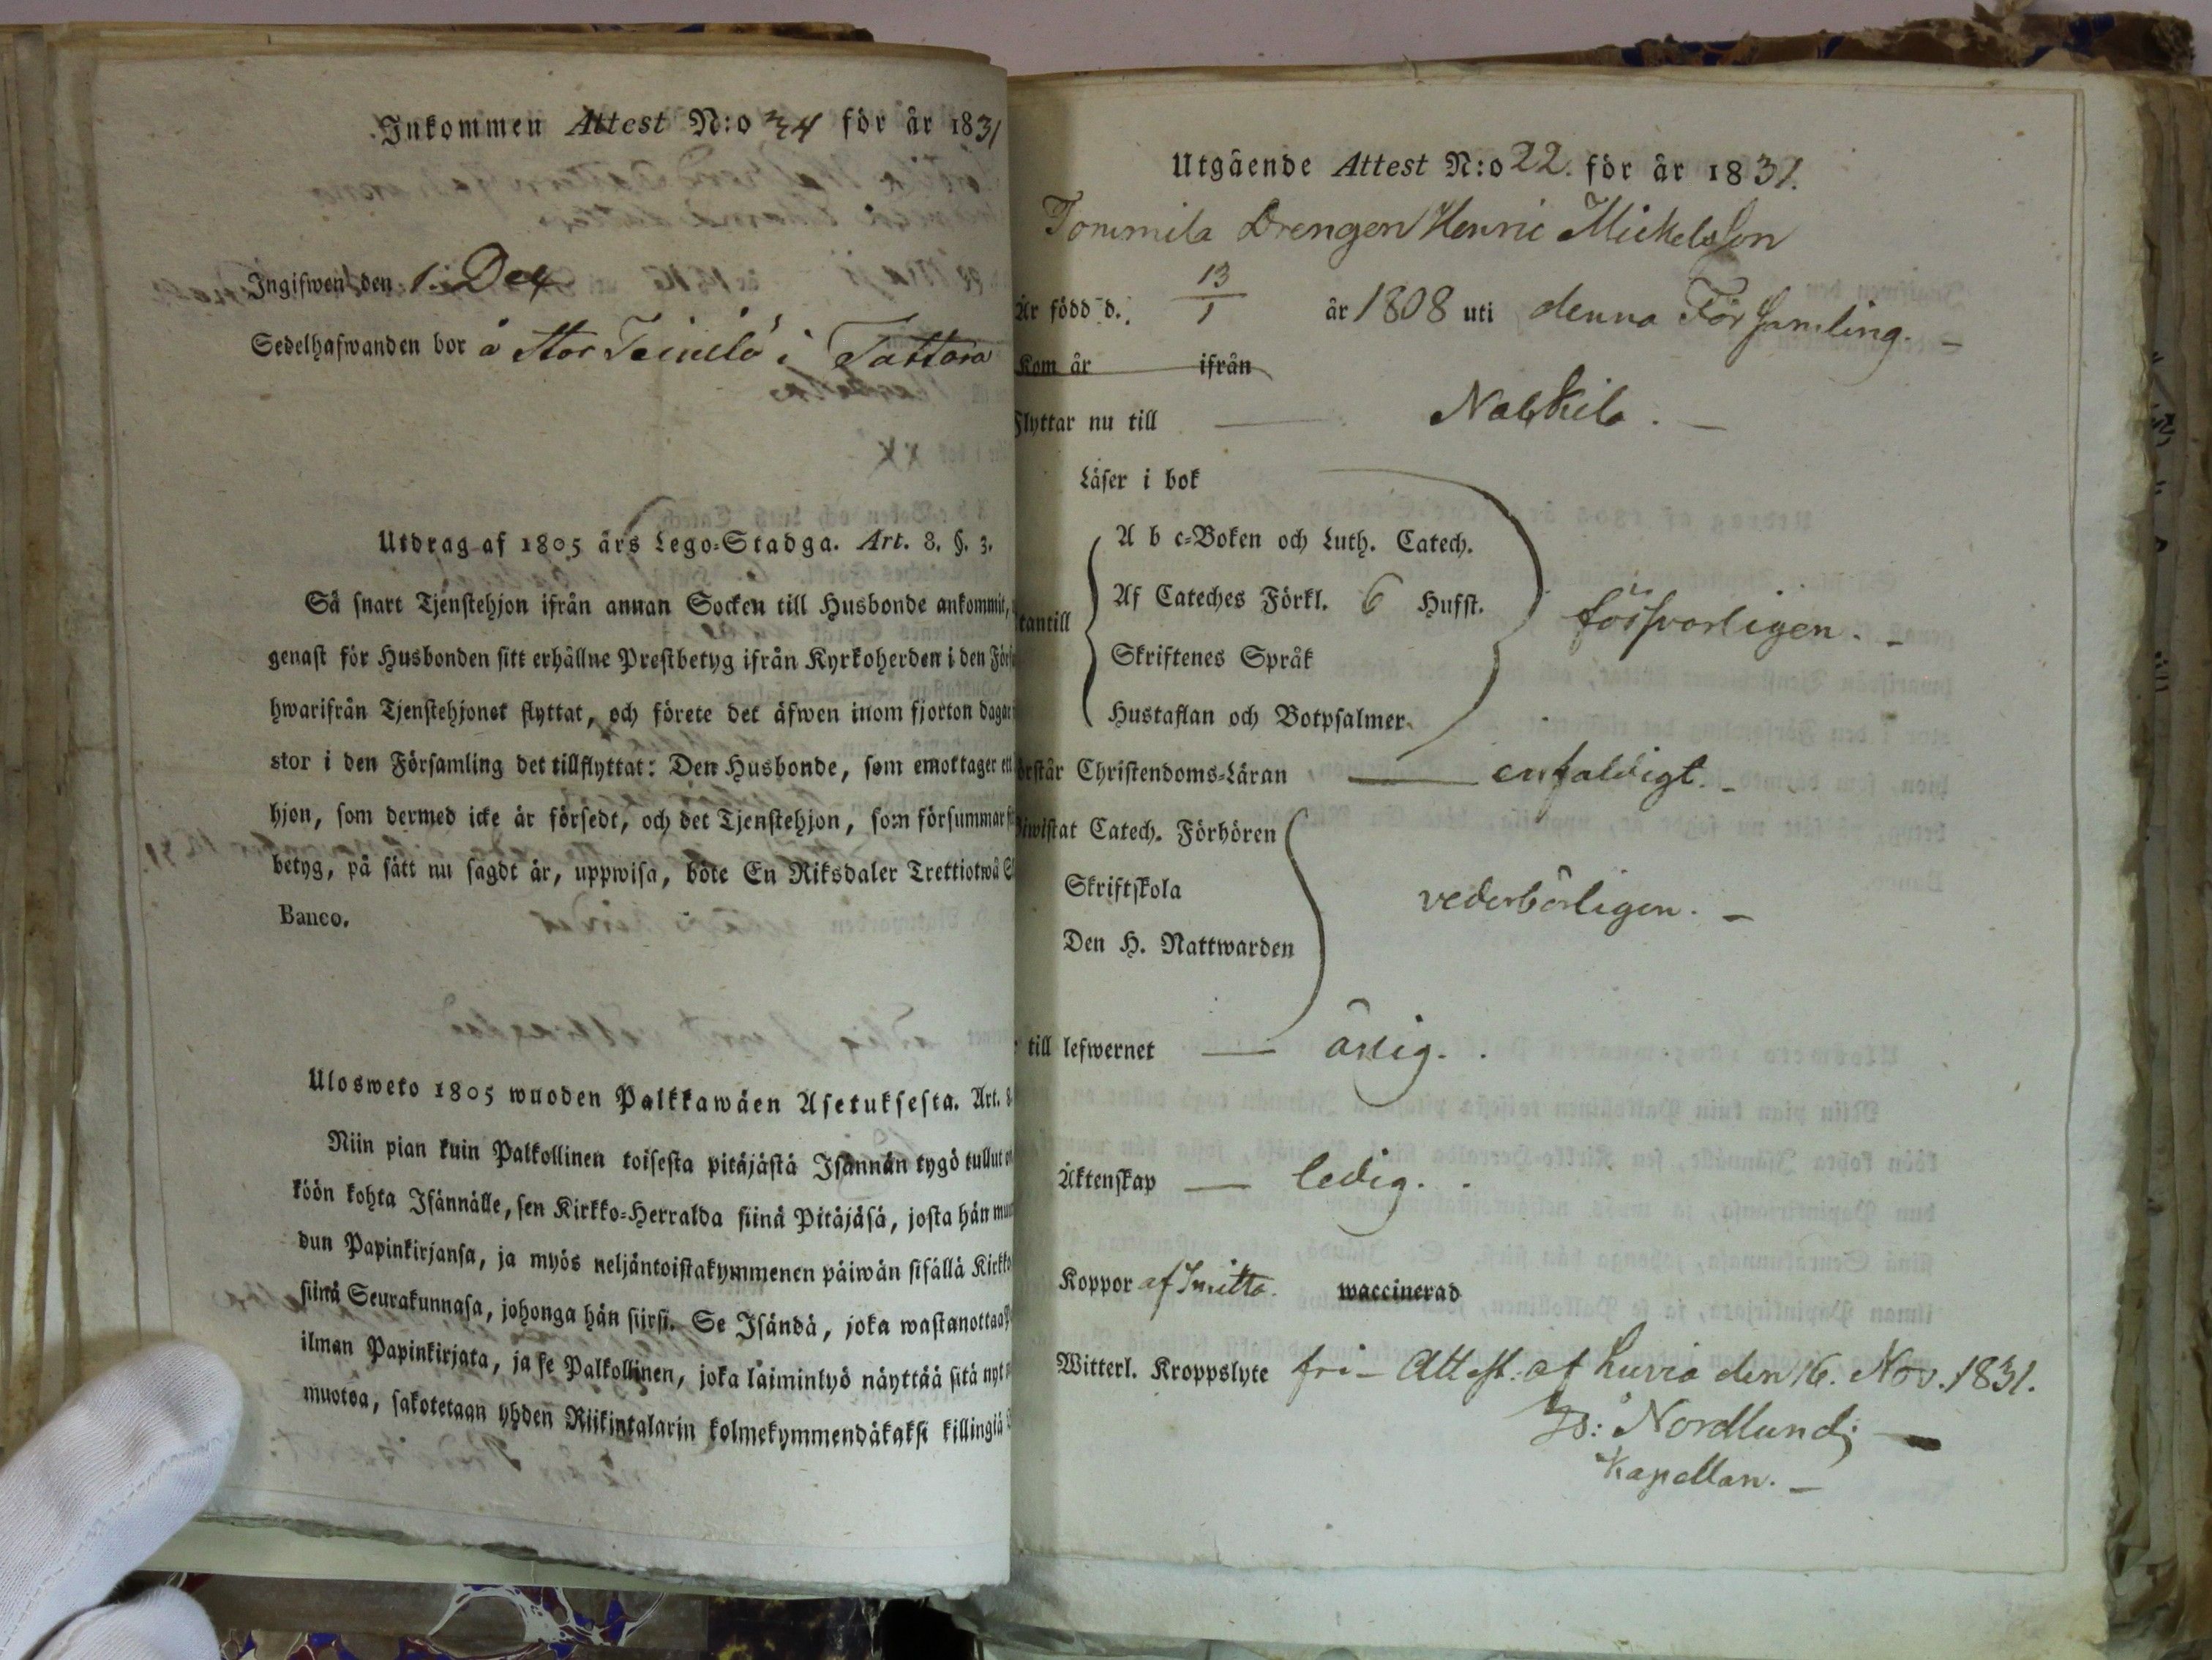 Inkommen Attest N:o 34 för år 1831
Ingifwen den 1. Dec
Sedelhafwanden bor å Stor Teinilä i Tattara
Utdrag af 1805 års Lego-Stadga. Art. 8. §. 3.
Så snart Tjenstehjon ifrån annan Socken till Husbonde ankommit,
genast för Husbonden sitt erhållne Prestbetyg ifrån Kyrkoherden i den
hwarifrån Tjenstehjonet flyttat, och förete det äfwen inom fjorton dagar
stor i den Församling det tillflyttat: Den Husbonde, som emottager ett
hjon, som dermed icke är försedt, och det Tjenstehjon, som försummar
betyg, på sätt nu sagdt är, uppwisa, böte En Riksdaler Trettiotwå
Banco.
Ulosweto 1805 wuoden Palkkawäen Asetuksesta. Art. 8
Niin pian kuin Palkollinen toisesta pitäjästä Isännän tygö tullut
köön kohta Isännälle, sen Kirkko-Herralda siinä Pitäjäsä, josta hän
dun Papinkirjansa, ja myös neljäntoistakymmenen päiwän sisällä
siinä Seurakunnasa, johonga hän siirsi. Se Isändä, joka wastanottaa
ilman Papinkirjata, ja se Palkollinen, joka laiminlyö näyttää sitä nyt
muotoa, sakotetaan yhden Riikintalarin kolmekymmendäkaksi killingiä
Utgående Attest N:o 22. för år 1831.
Tommila Drengen Henric Mickelsson
Är född d. 13/1 år 1808 uti denna Församling. -
Kom år ifrån
Flyttar nu till — Nakkila. -
Läser i bok
A b c-Boken och Luth. Catech.
Af Cateches Förkl. 6 Hufst.
försvarligen. -
Skriftenes Språk
Hustaflan och Botpsalmer
Christendoms-Läran — enfaldigt. -
Catech. Förhören
Skriftskola
vederbörligen. -
Den H. Nattwarden
till lefwernet — ärlig.
Äktenskap — ledig.
Koppor af Smitta. waccinerad
Witterl. Kroppslyte fri - Attest. af Luvia den 16. Nov. 1831.
Nordlund;
Kapellan. -